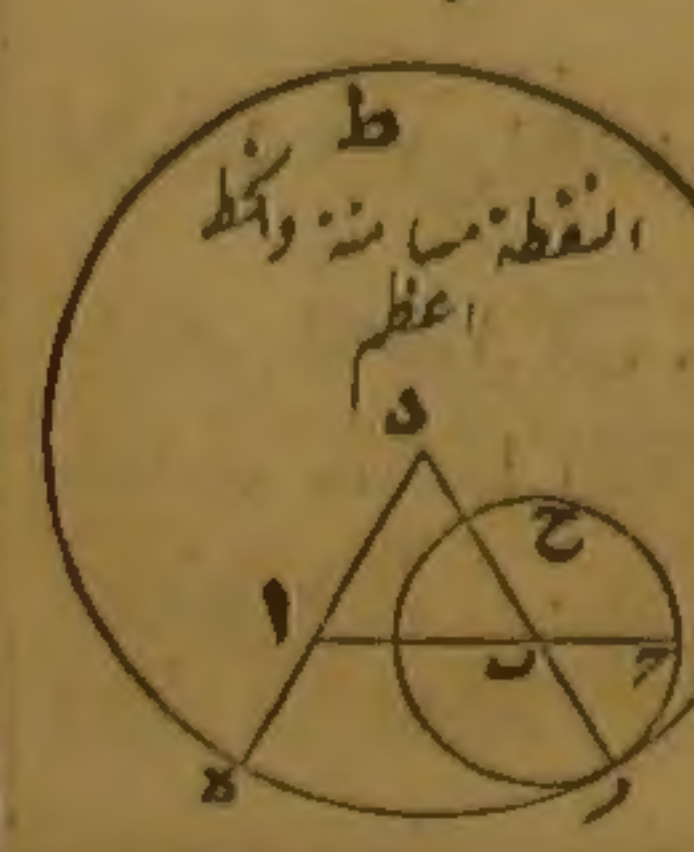 ط
النقطة مسامتة والخط
اعظم
د
ح
ا
ب
ج
ه
ر